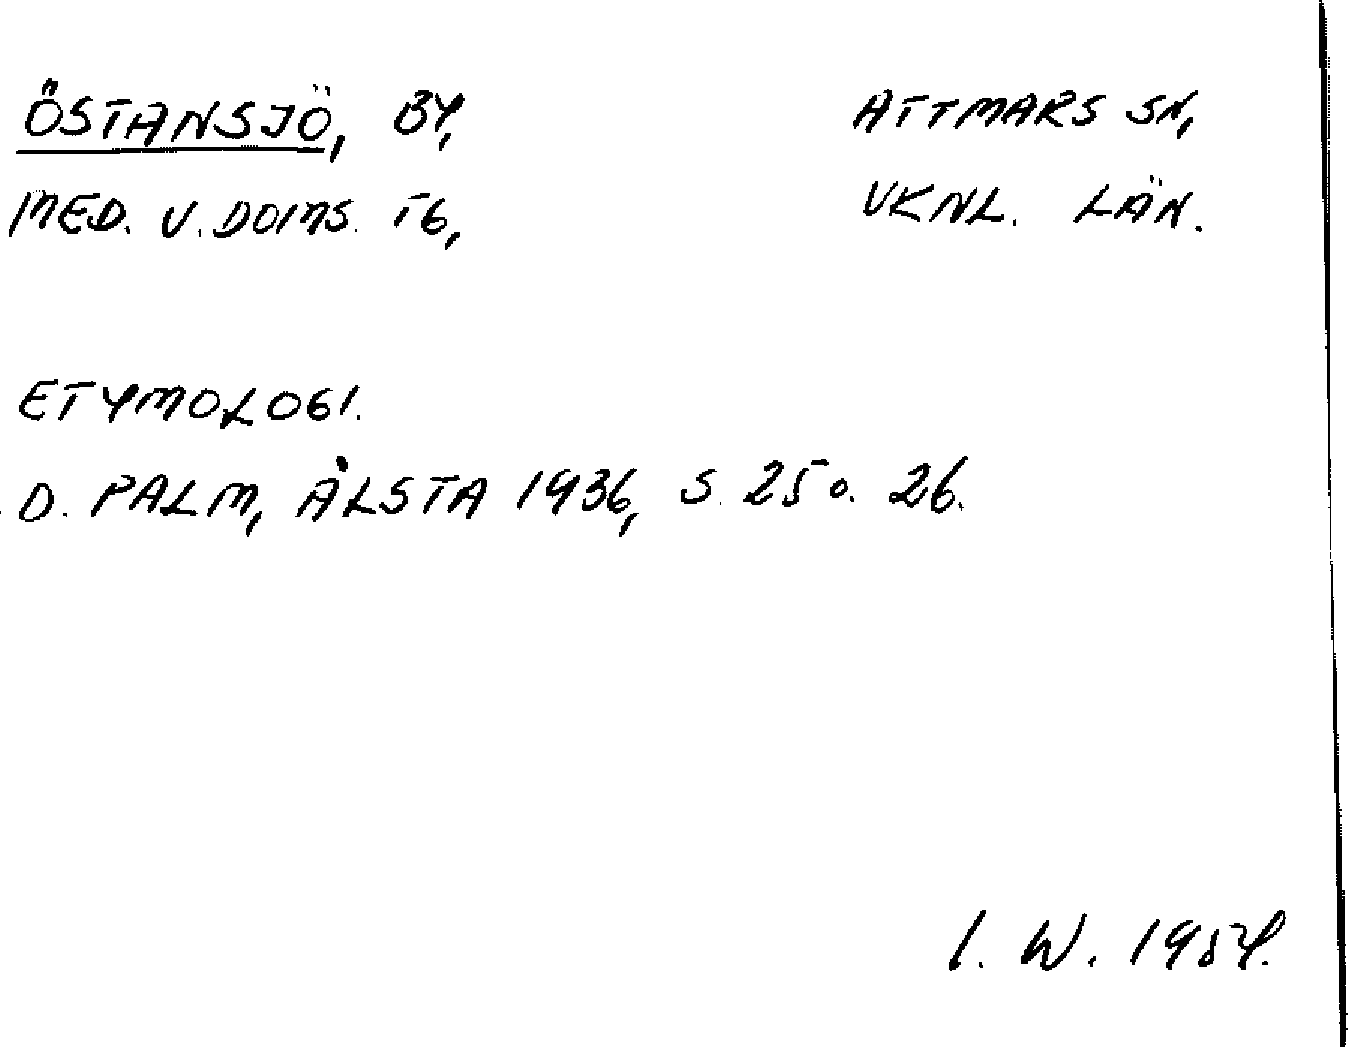 ÖSTANSJÖ, BY, ATTMARS SN,
MED. V. DOMS. TG, VKNL. LÄN.
ETYMOLOGI.
D. PALM, ÅLSTA 1936, S. 25 O. 26.
I. W. 1954.